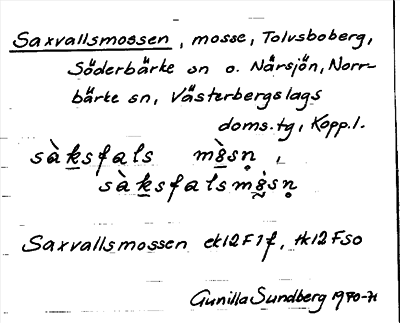 Saxvallsmossen, mosse, Tolvsboberg,
Söderbärke sn o. Närsjön, Norr-
bärke sn, Västerbergslags
doms.tg, Kopp.l.
sàksfals mɛ̀sn̥,
sàksfalsmɛ̀sn̥
Saxvallsmossen ek12F1f, tk12FSO
Gunilla Sundberg 1970-71